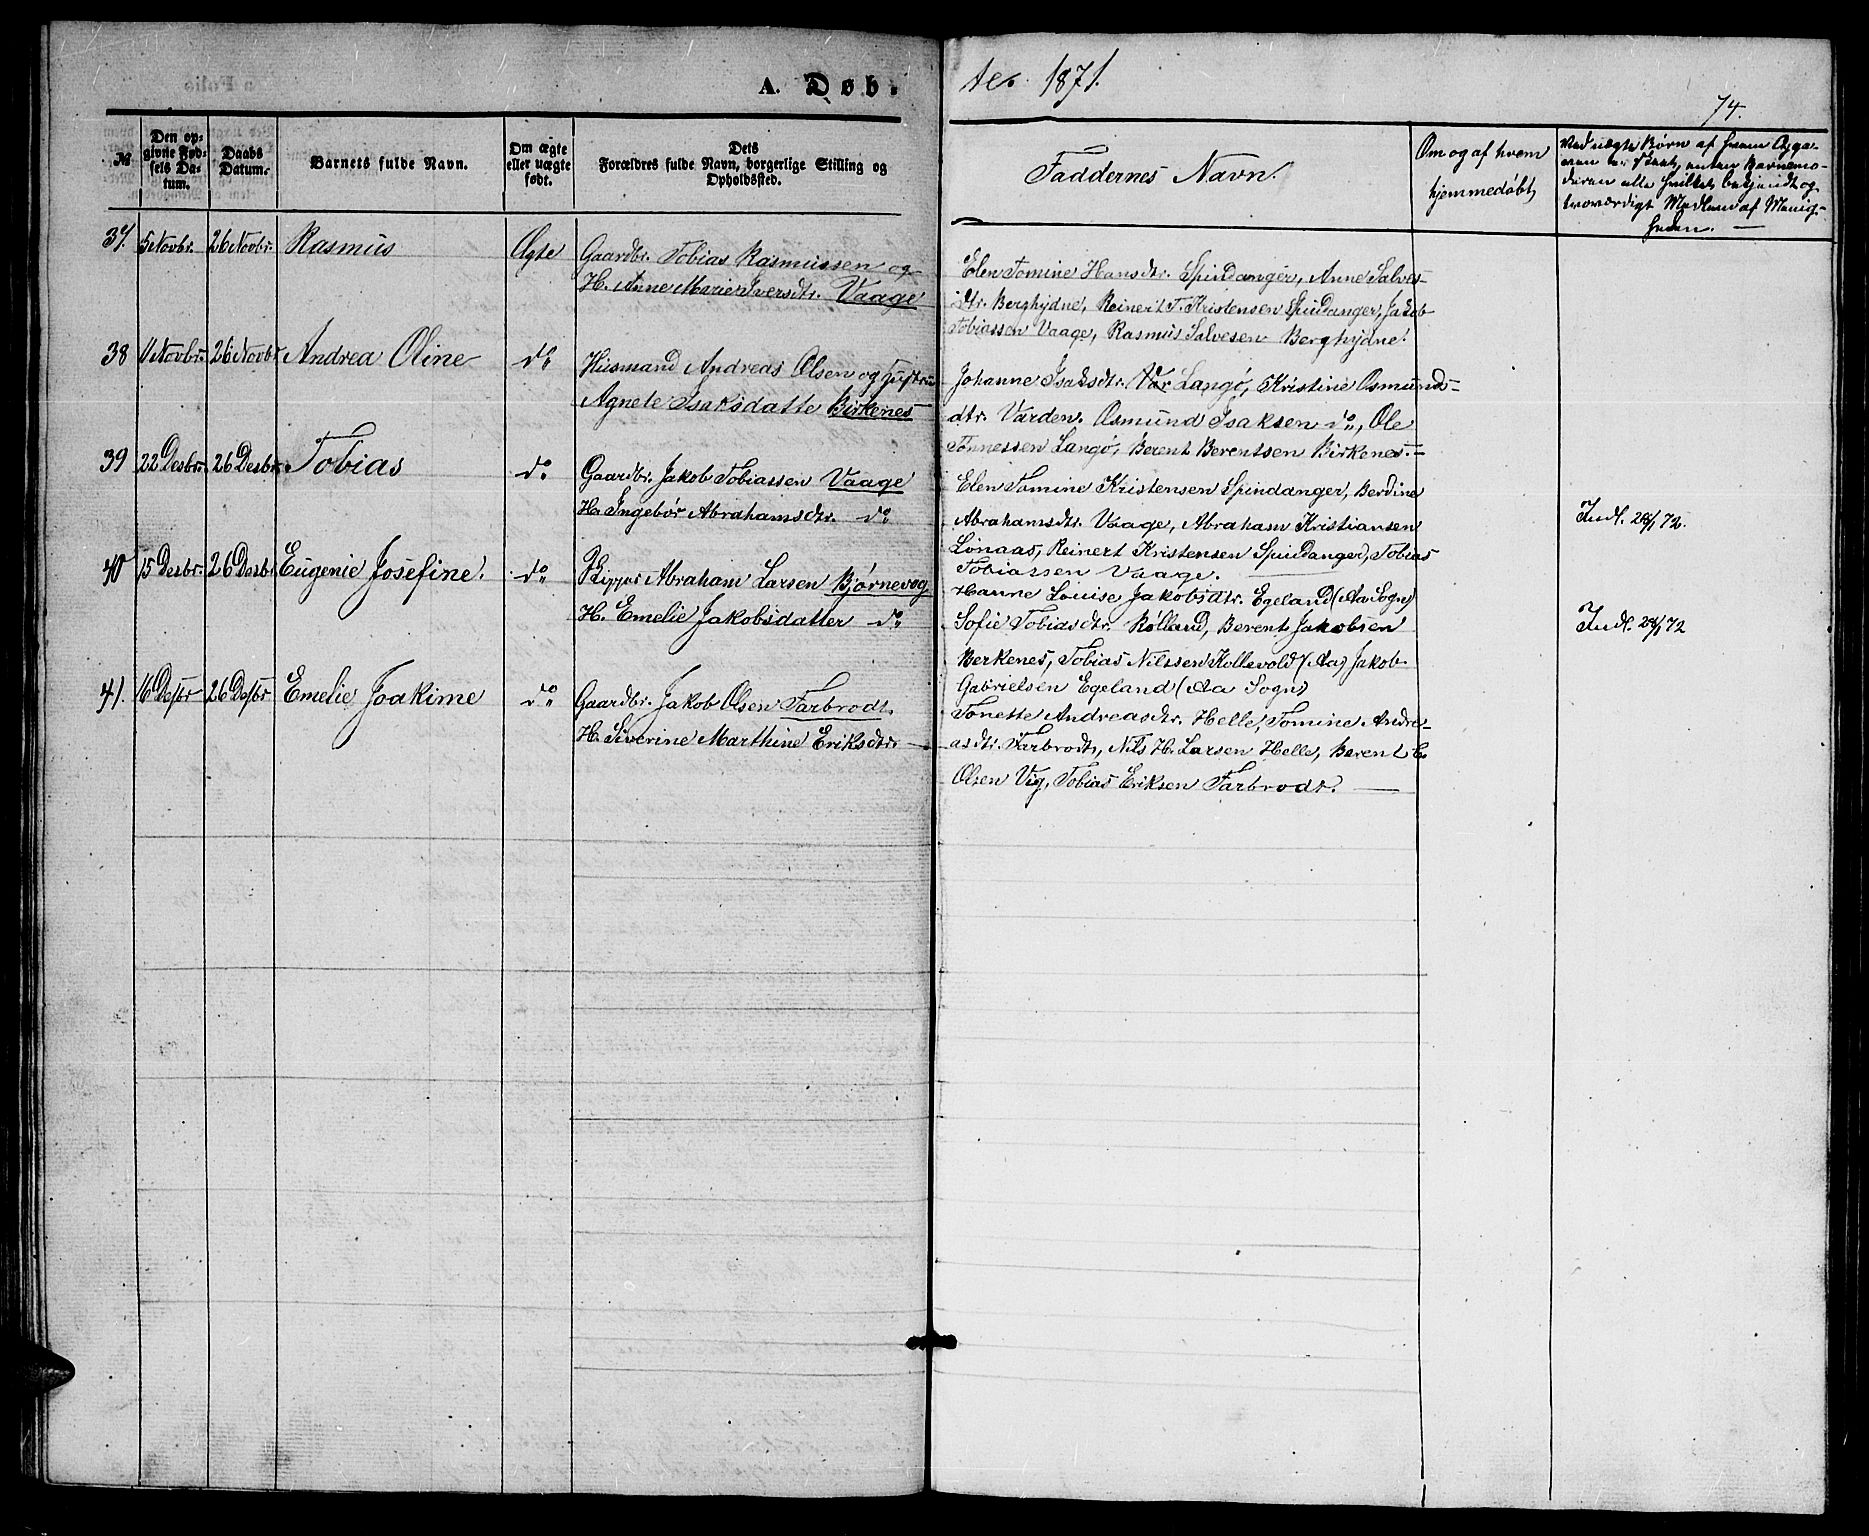 A. Døb.
te. 1871.
74.
№
Den op-
givne Fød-
sels Da-
tum.
Daabs
Datum.
Barnets fulde Navn.
Om ægte
eller uægte
født.
Dets
Forældres fulde Navn, borgerlige Stilling og
Opholdssted.
Faddernes Navn.
Om og af hvem
hjemmedøbt,
Børn af
Medlem af Menig-
heden. —
37. 5 Novbr. 26 Novbr. Rasmus Ægte Gaardbr. Tobias Rasmussen og
H. Anne Marie Iversdtr. Vaage
Elen Tomine Hansdtr. Spindanger, Anne Salves-
dtr. Berghydne, Reinert T. Kristensen Spindanger, Jakob
Tobiassen Vaage, Rasmus Salvesen Berghydne.
38 Novbr. 26 Novbr. Andrea Oline do Husmand Andreas Olsen og Hustru
Agnete Isaksdatte Birkenes
Johanne Isaksdtr. Langø, Kristine Osmunds-
dtr. Varden. Osmund Isaksen do, Ole
Tønnessen Langø, Berent Berentsen Birkenes. —
39 22 Desbr. 26 Desbr. Tobias do Gaardbr. Jakob Tobiassen Vaage
H. Ingebør Abrahamsdtr. do
Elen Tomine Kristensen Spindanger, Berdine
Abrahamsdtr. Vaage, Abraham Kristiansen
Lønaas, Reinert Kristensen Spindanger, Tobias
Tobiassen Vaage.
Indl. 28/1 72.
40 15 Desbr. 26 Desbr. Eugenie Josefine. do Abraham Larsen Bjørnevog
H. Emelie Jakobsdatter do
Hanne Louise Jakobsdtr. Egeland (Aa Sogn)
Sofie Tobiasdtr. Rølland, Berent Jakobsen
Berkenes, Tobias Nilssen Kollevold (Aa) Jakob
Gabrielsen Egeland (Aa Sogn)
Indl. 28/1 72
41. 16 Desbr 26 Desbr Emelie Joakime do Gaardbr. Jakob Olsen Farbrodt.
H. Siverine Marthine Eriksdtr —
Tonette Andreasdtr. Helle, Tomine Andre-
asdtr. Farbrodt, Nils H. Larsen Helle, Berent E.
Olsen Vig, Tobias Eriksen Farbrodt. —